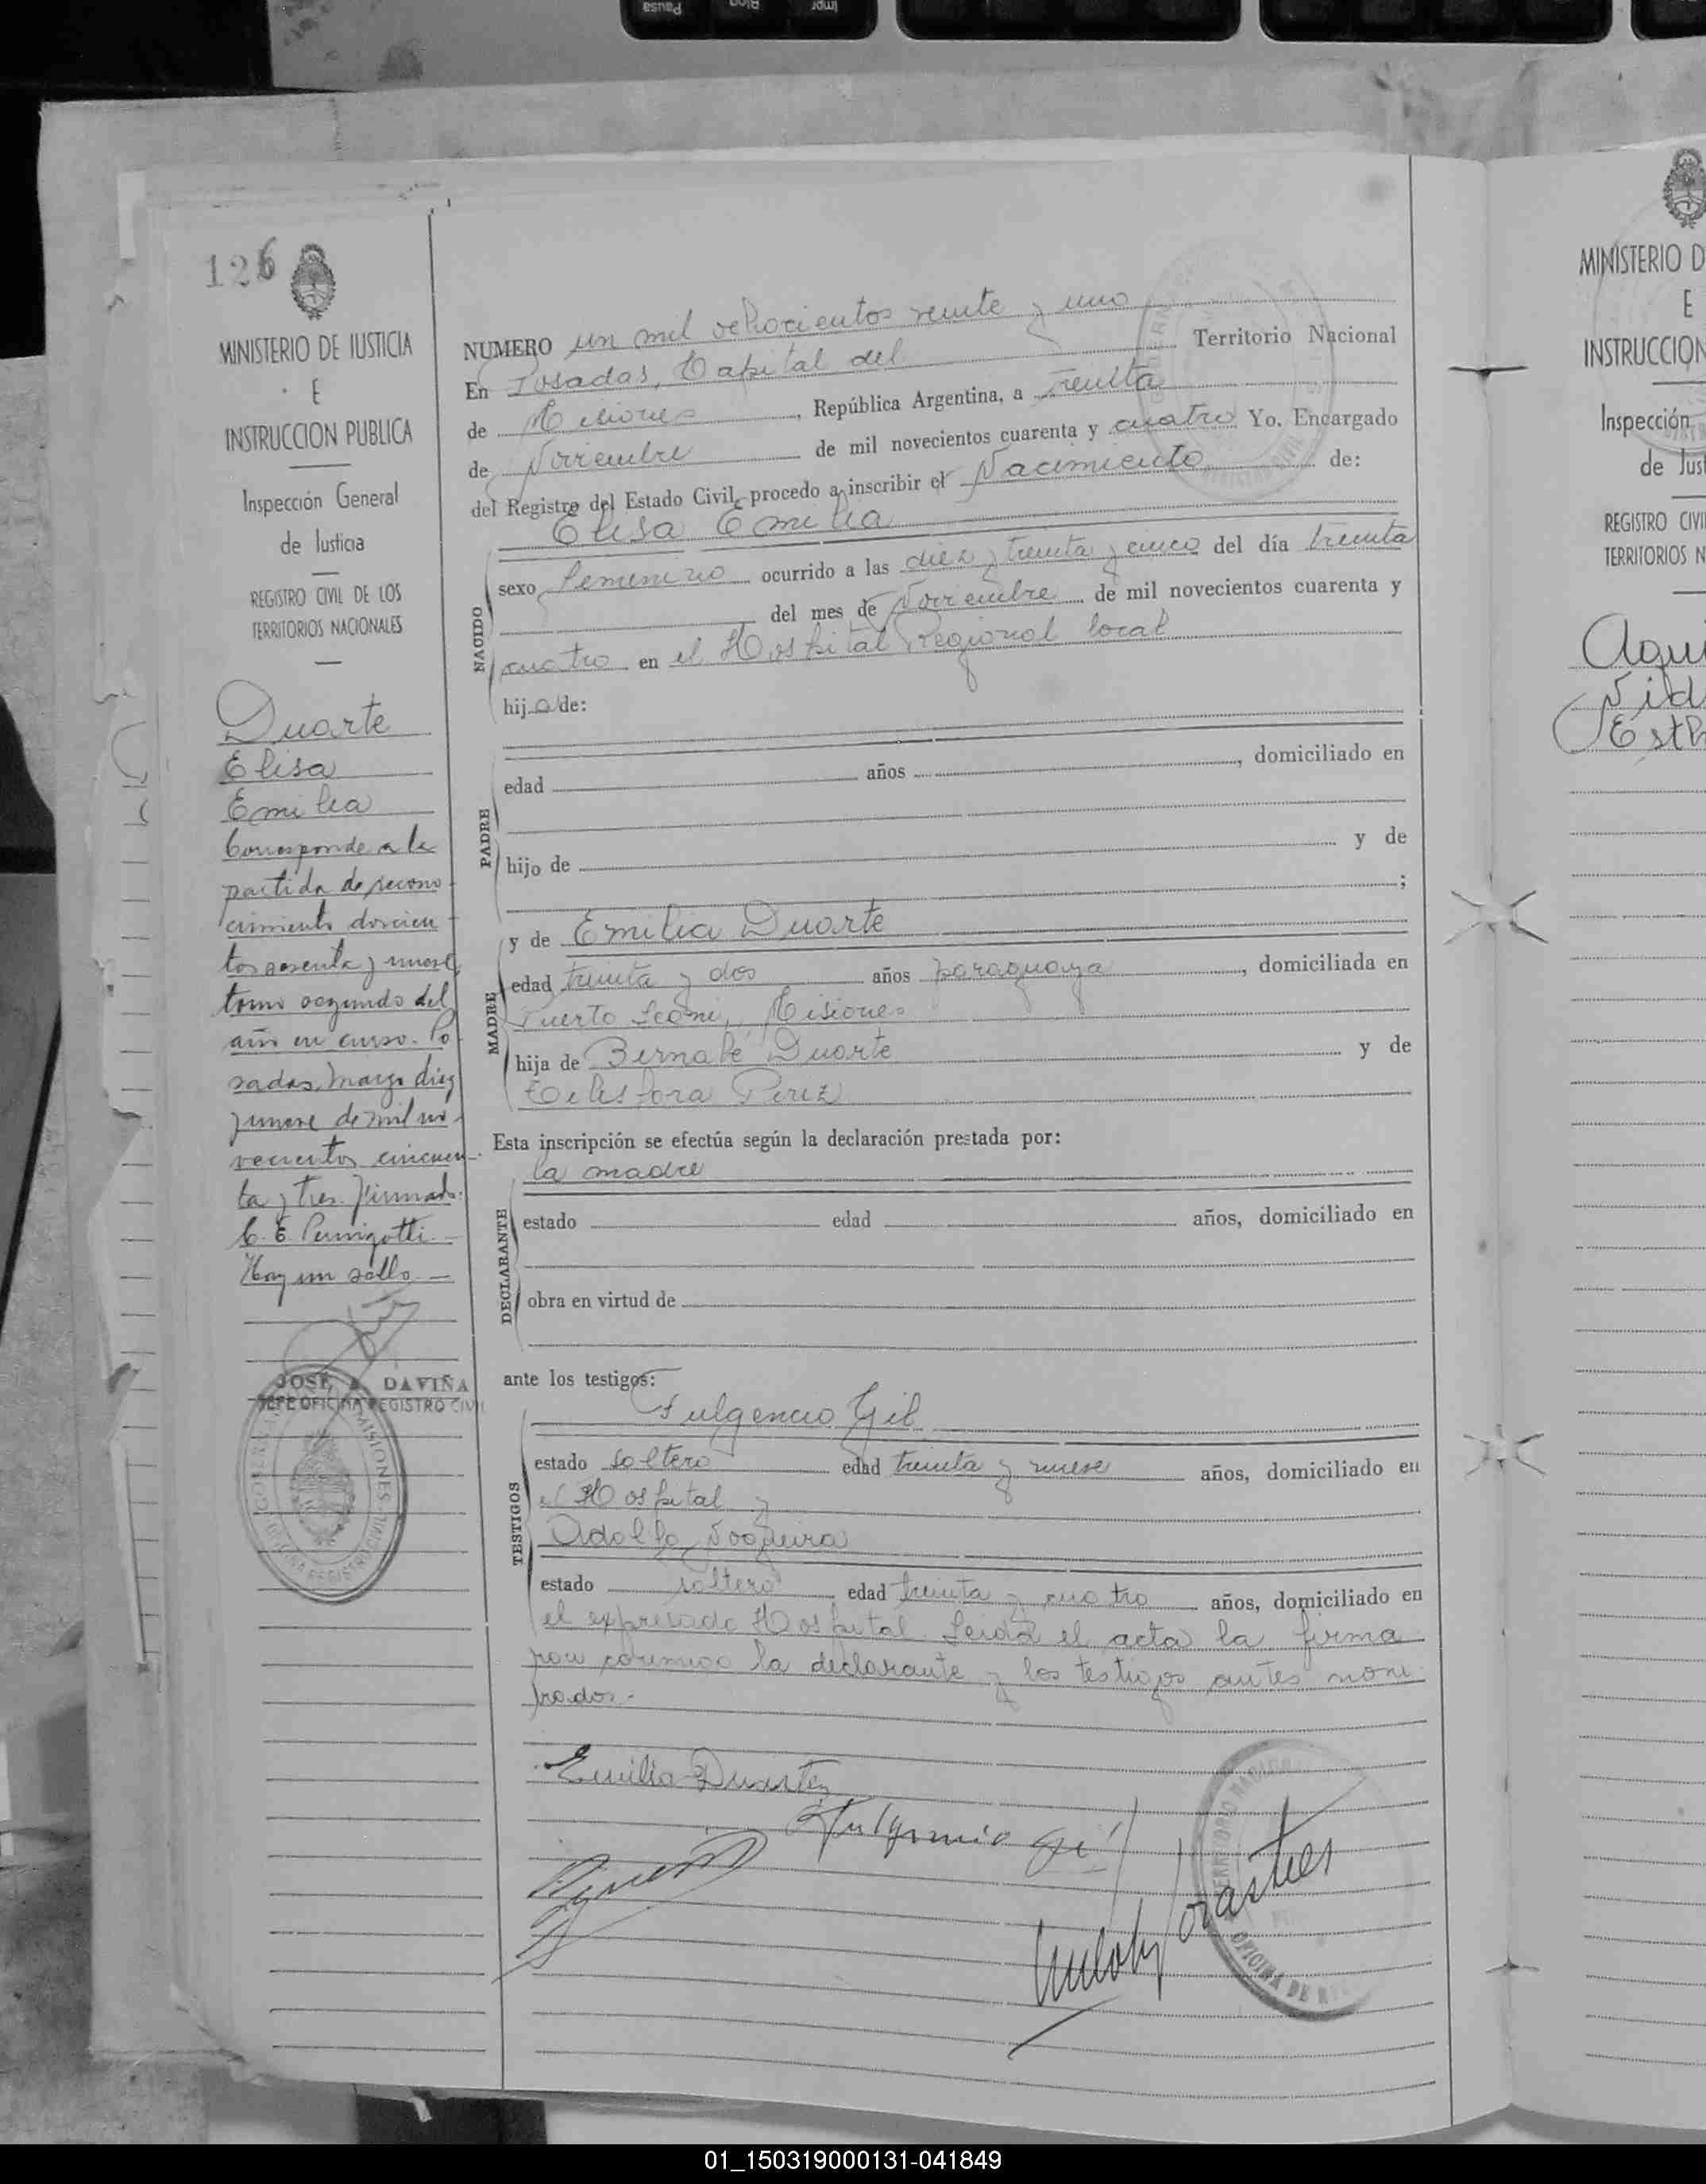 Pausa
Impr
126
MINISTERIO DE JUSTICIA
E
INSTRUCCION PUBLICA
Inspección General
de Justicia
REGISTRO CIVIL DE LOS
TERRITORIOS NACIONALES
Duarte
Elisa
Emilia
Corresponde a la
partida de recono
cimiento doscien
tos sesenta y nueve
tomo segundo del
año en curso. Po
sadas, marzo diez
y nueve de mil no
vecientos cincuen
ta y tres. Firmado:
C. E. Pernigotti.
Hay un sello.
JOSE DAVIÑA
JEFE OFICINA REGISTRO CIVIL
MISIONES
NUMERO un mil ochocientos veinte y uno
En Posadas, Capital del Territorio Nacional
de Misiones, República Argentina, a treinta
de Noviembre de mil novecientos cuarenta y cuatro Yo. Encargado
del Registro del Estado Civil, procedo a inscribir el Nacimiento de:
Elisa Emilia
NACIDO
sexo femenino ocurrido a las diez y treinta y cinco del día treinta
del mes de Noviembre de mil novecientos cuarenta y
cuatro en el Hospital Regional local
hija de:
PADRE
edad años , domiciliado en
hijo de y de
;
MADRE
y de Emilia Duarte
edad treinta y dos años paraguaya, domiciliada en
Puerto Leoni, Misiones
hija de Bernabé Duarte y de
Telesfora Perez
Esta inscripción se efectúa según la declaración prestada por:
la madre
DECLARANTE
estado edad años, domiciliado en
obra en virtud de
ante los testigos:
TESTIGOS
Fulgencio Gil
estado soltero edad treinta y nueve años, domiciliado en
el Hospital y
Adolfo Nogueira
estado soltero edad treinta y cuatro años, domiciliado en
el expresado Hospital. Leida el acta la firma
con conmigo la declarante y los testigos antes nom
brados.-
Emilia Duarte
Fulgencio Gil
OFICINA DE
MINISTERIO D
E
INSTRUCCION
Inspección
de Just
REGISTRO CIVI
TERRITORIOS N
Aqui
Vid
Esth
01_150319000131-041849